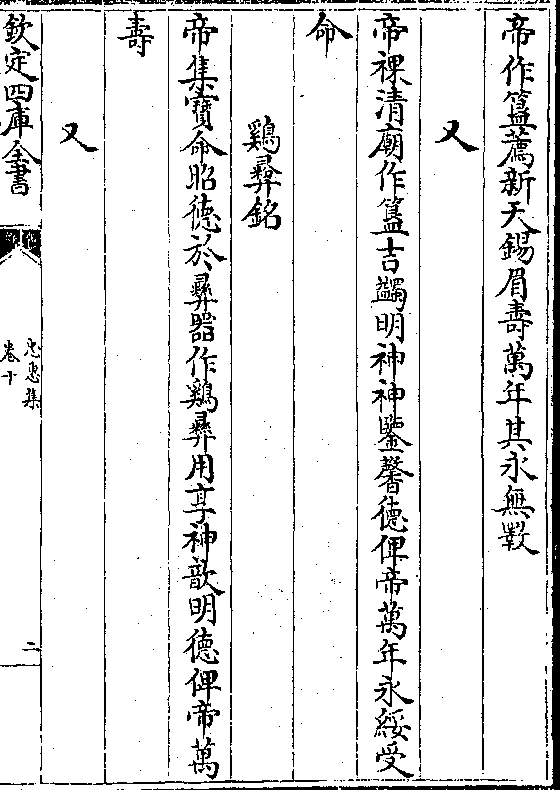 帝作簋薦新天錫眉壽萬年其永無斁
又
帝祼清廟作簋吉蠲明神神鑒馨德俾帝萬年永綏受
命
鷄彛銘
帝集寶命昭德於彛器作鷄彛用享神歆明德俾帝萬
壽
又
欽定四庫全書
忠惠集
卷十
二